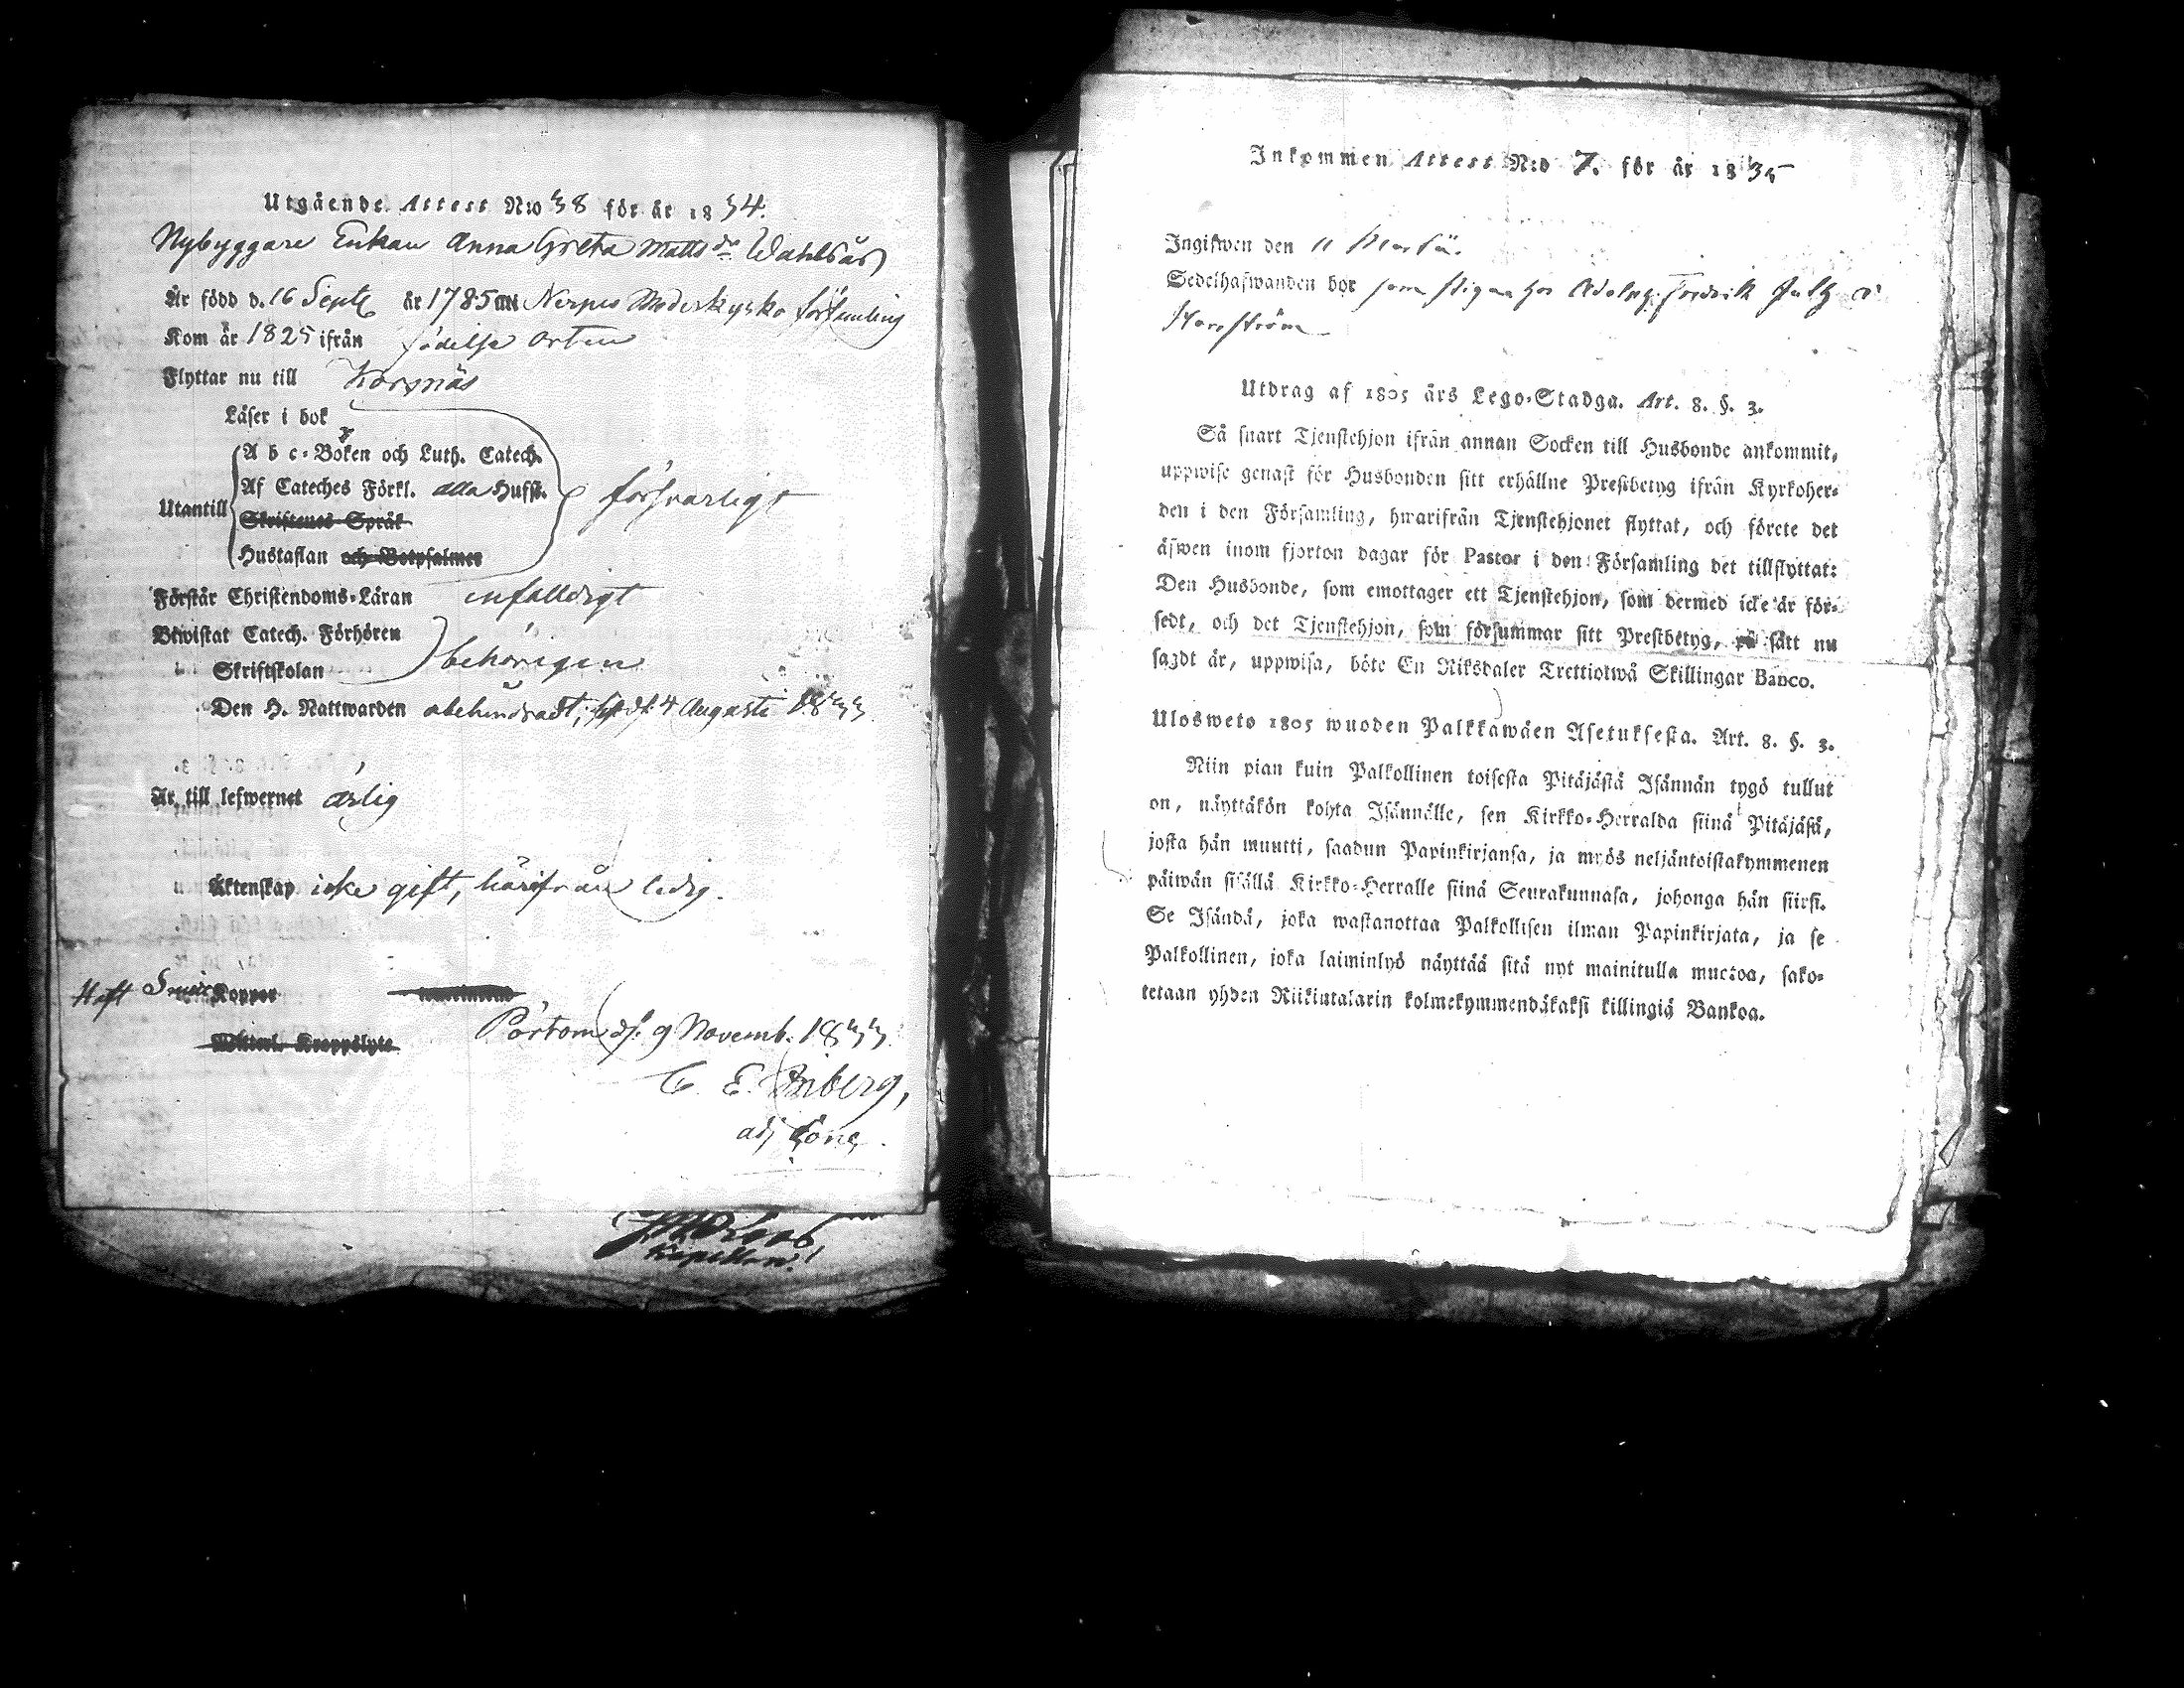 Utgående Attest N:o 38 för år 1834.
Nybyggare Enkan Anna Greta Matts dr Wahlsår
Är född d. 16 Septr år 1785 uti Nerpes Moderkyrko församling
Kom år 1825 ifrån födelse orten
Flyttar nu till Korsnäs
Läser i bok
A b c-Boken och Luth. Catech.
Af Cateches Förkl. alla Hufst.
Utantill försvarligt
Skriftenes Språk
Hustaflan och Botpsalmer
Förstår Christendoms-Läran enfalldigt
Biwistat Catech. Förhören
behörigen
Skriftskolan
Den H. Nattwarden obehindradt, d. 4 Augusti 1833
Är till lefwernet ärlig
Äktenskap icke gift, härifrån ledig.
Haft Koppor
Pörtom d. 9 Novemb. 1833.
C. E.
adj
Kapellan.
Inkommen Attest N:o 7. för år 1835
Ingifwen den 11 Martii.
Sedelhafwanden bor som piga hos Adolph Fredrik i
Utdrag af 1805 års Lego-Stadga. Art. 8. §. 3.
Så snart Tjenstehjon ifrån annan Socken till Husbonde ankommit,
uppwise genast för Husbonden sitt erhållne Prestbetyg ifrån Kyrkoher-
den i den Församling, hwarifrån Tjenstehjonet flyttat, och förete det
äfwen inom fjorton dagar för Pastor i den Församling det tillflyttat:
Den Husbonde, som emottager ett Tjenstehjon, som dermed icke är för-
sedt, och det Tjenstehjon, som försummar sitt Prestbetyg, på sätt nu
sagdt är, uppwisa, böte En Riksdaler Trettiotwå Skillingar Banco.
Ulosweto 1805 wuoden Palkkawäen Asetuksesta. Art. 8. §. 3.
Niin pian kuin Palkollinen toisesta Pitäjästä Isännän tygö tullut
on, näyttäkön kohta Isännälle, sen Kirkko-Herralda siinä Pitäjäsä,
josta hän muutti, saadun Papinkirjansa, ja myös neljäntoistakymmenen
päiwän sisällä Kirkko-Herralle siinä Seurakunnasa, johonga hän siirsi.
Se Isändä, joka wastanottaa Palkollisen ilman Papinkirjata, ja se
Palkollinen, joka laiminlyö näyttää sitä nyt mainitulla muotoa, sako-
tetaan yhden Riikintalarin kolmekymmendäkaksi killingiä Bankoa.